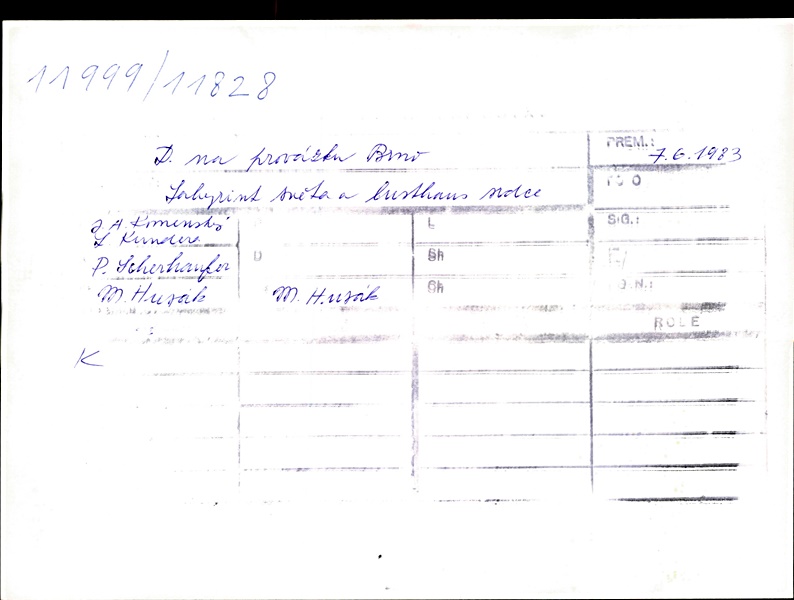 11999/11828
D. na provázku Brno PREM.: 7.6.1983
Labyrint světa a lusthaus srdce
J A Komenský L SIG.:
L Kundera
P. Scherhaufer D Sh
M. Husák M. Husák Sh
ROLE
K